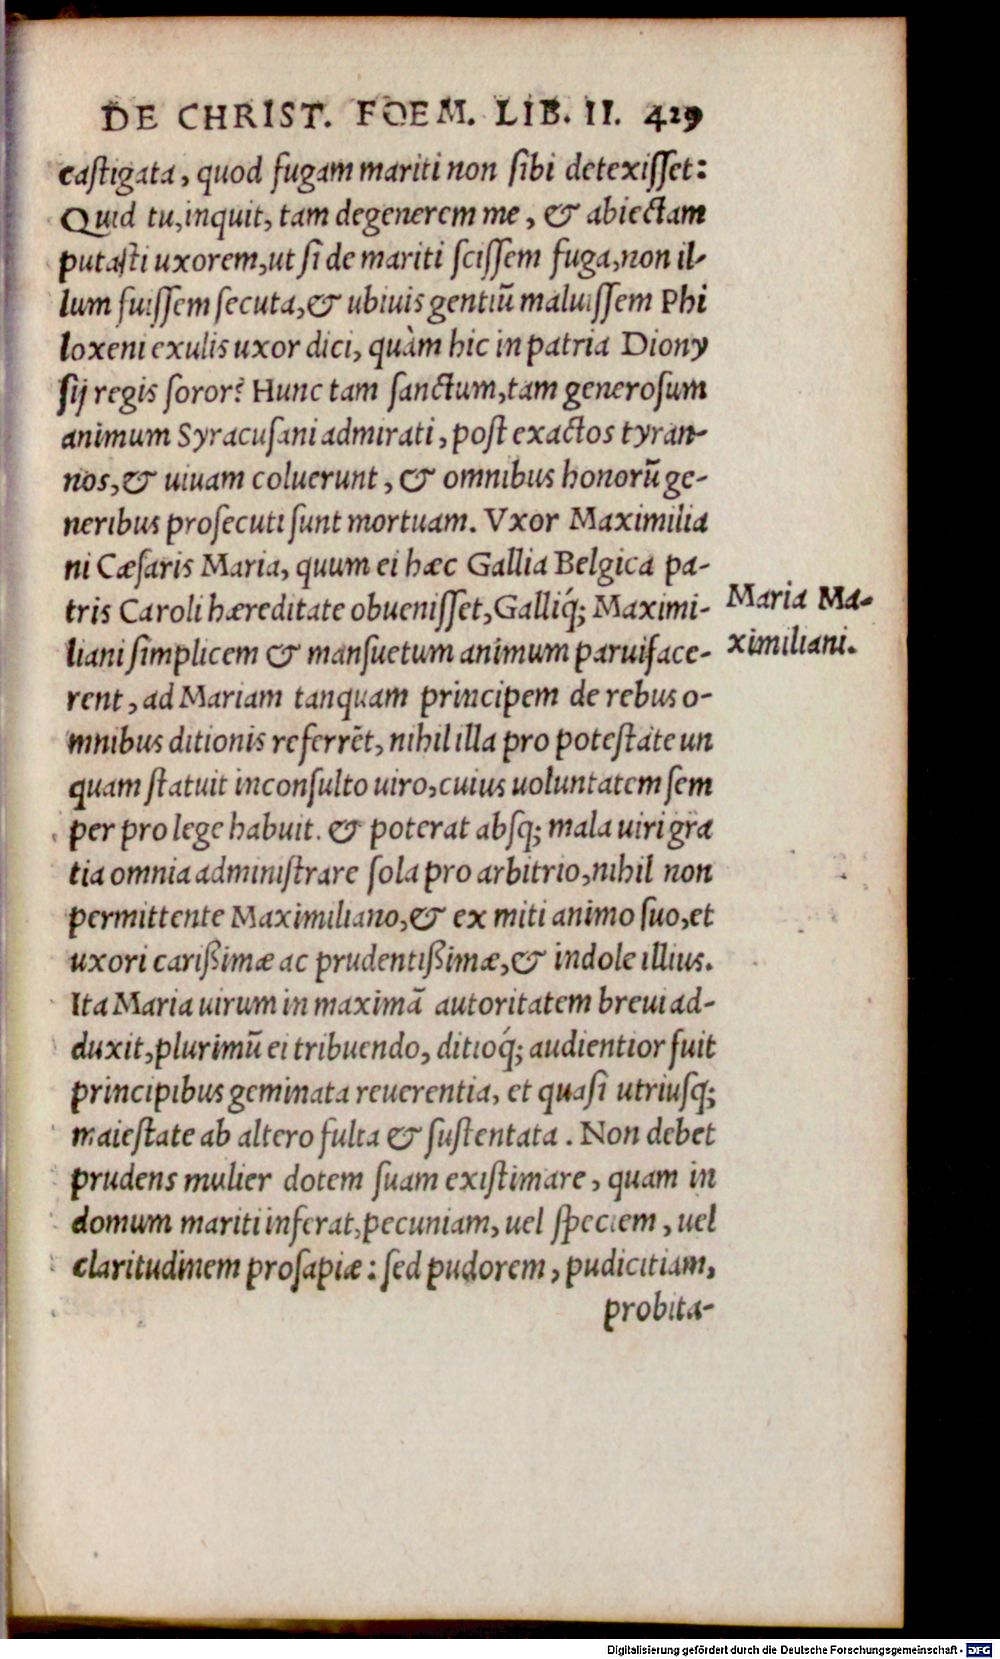 DE CHRIST. FOEM. LIB. II. 429
castigata, quod fugam mariti non sibi detexisset:
Quid tu, inquit, tam degenerem me, & abiectam
putasti uxorem, ut si de mariti scissem fuga, non il-
lum fuissem secuta, & ubiuis gentiũ maluissem Phi
loxeni exulis uxor dici, quàm hic in patria Diony
sij regis soror? Hunc tam sanctum, tam generosum
animum Syracusani admirati, post exactos tyran-
nos, & uiuam coluerunt, & omnibus honorũ ge-
neribus prosecuti sunt mortuam. Vxor Maximilia
ni Cæsaris Maria, quum ei hæc Gallia Belgica pa-
tris Caroli hæreditate obuenisset, Galliq́; Maximi-
liani simplicem & mansuetum animum paruiface-
rent, ad Mariam tanquam principem de rebus o-
mnibus ditionis referrẽt, nihil illa pro potestate un
quam statuit inconsulto uiro, cuius uoluntatem sem
per pro lege habuit. & poterat absq; mala uiri gra
tia omnia administrare sola pro arbitrio, nihil non
permittente Maximiliano, & ex miti animo suo, et
uxori carißimæ ac prudentißimæ, & indole illius.
Ita Maria uirum in maximã autoritatem breui ad-
duxit, plurimũ ei tribuendo, ditioq́; audientior fuit
principibus geminata reuerentia, et quasi utriusq;
maiestate ab altero fulta & sustentata. Non debet
prudens mulier dotem suam existimare, quam in
domum mariti inferat, pecuniam, uel speciem, uel
claritudinem prosapiæ: sed pudorem, pudicitiam,
probita-
Maria Ma-
ximiliani.
Digitalisierung gefördert durch die Deutsche Forschungsgemeinschaft - DFG